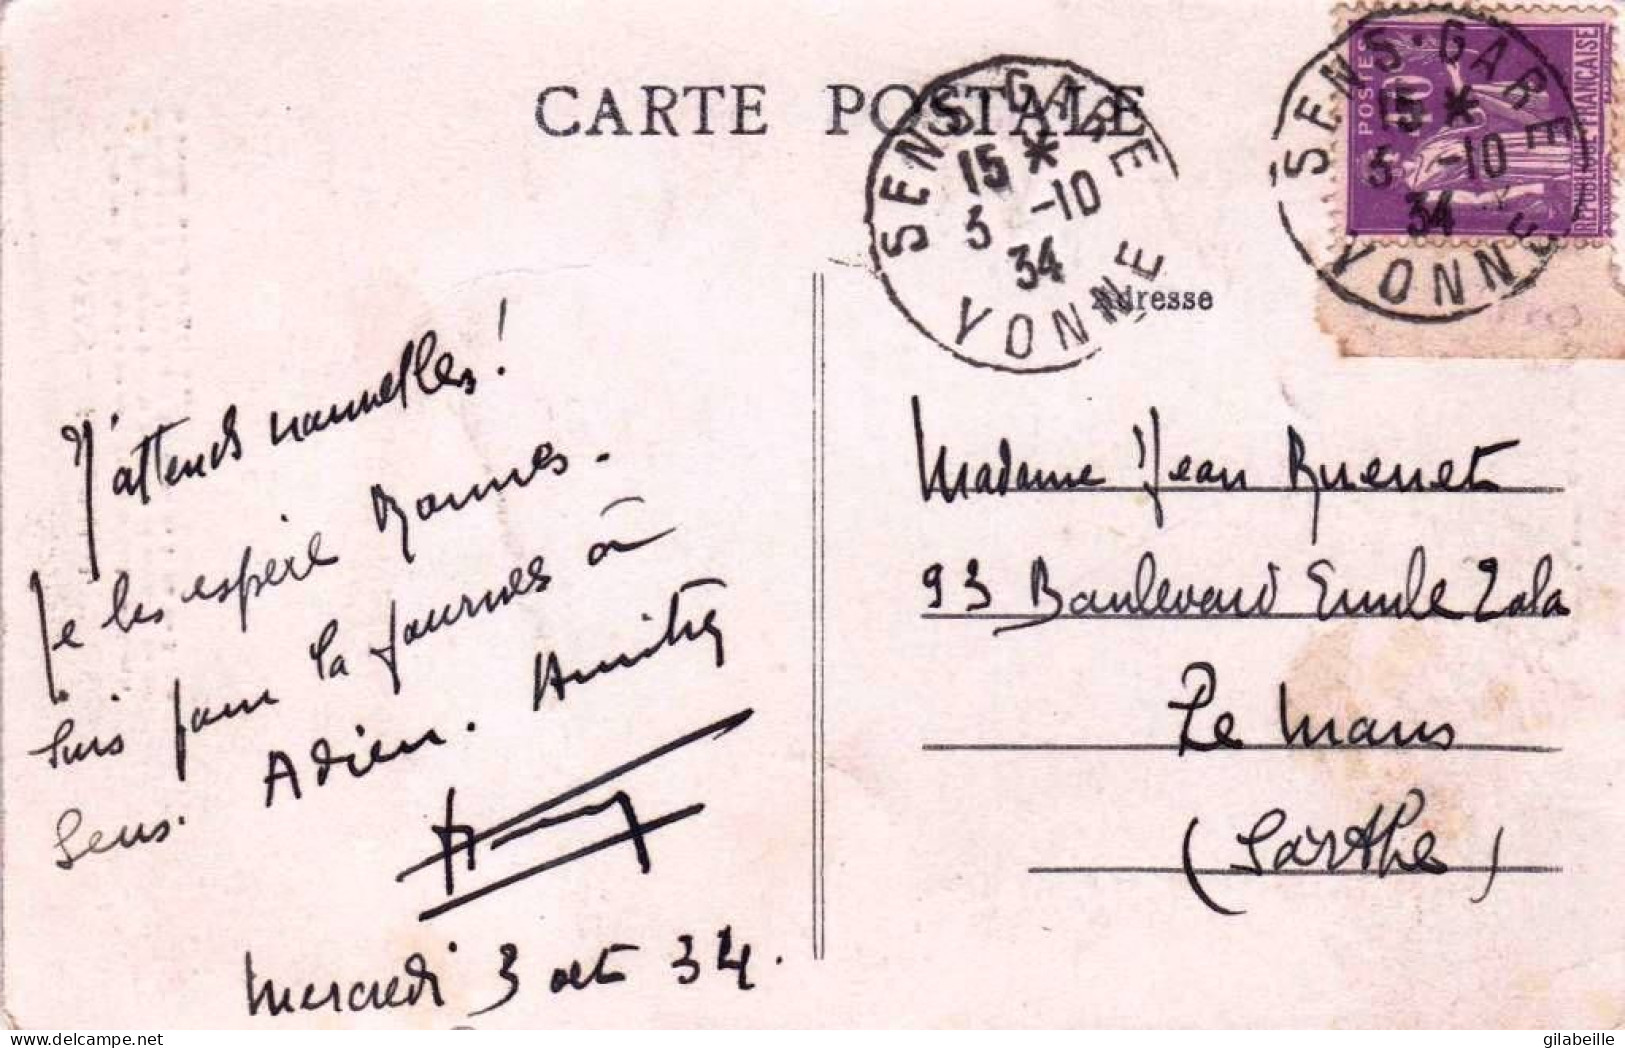 CARTE POSTALE
SENS-GARE
15 *
3 -10
34
YONNE
SENS-GARE
15 *
3 -10
34
YONNE
POSTES
REPUBLIQUE FRANÇAISE
Adresse
J'attends nouvelles!
Je les espère Bonnes.
Suis pour la journée à
Sens. Adieu. Amitiés
Mercredi 3 oct 34.
Madame Jean
93 Boulevard Emile Zola
Le Mans
(Sarthe)
gilabeille